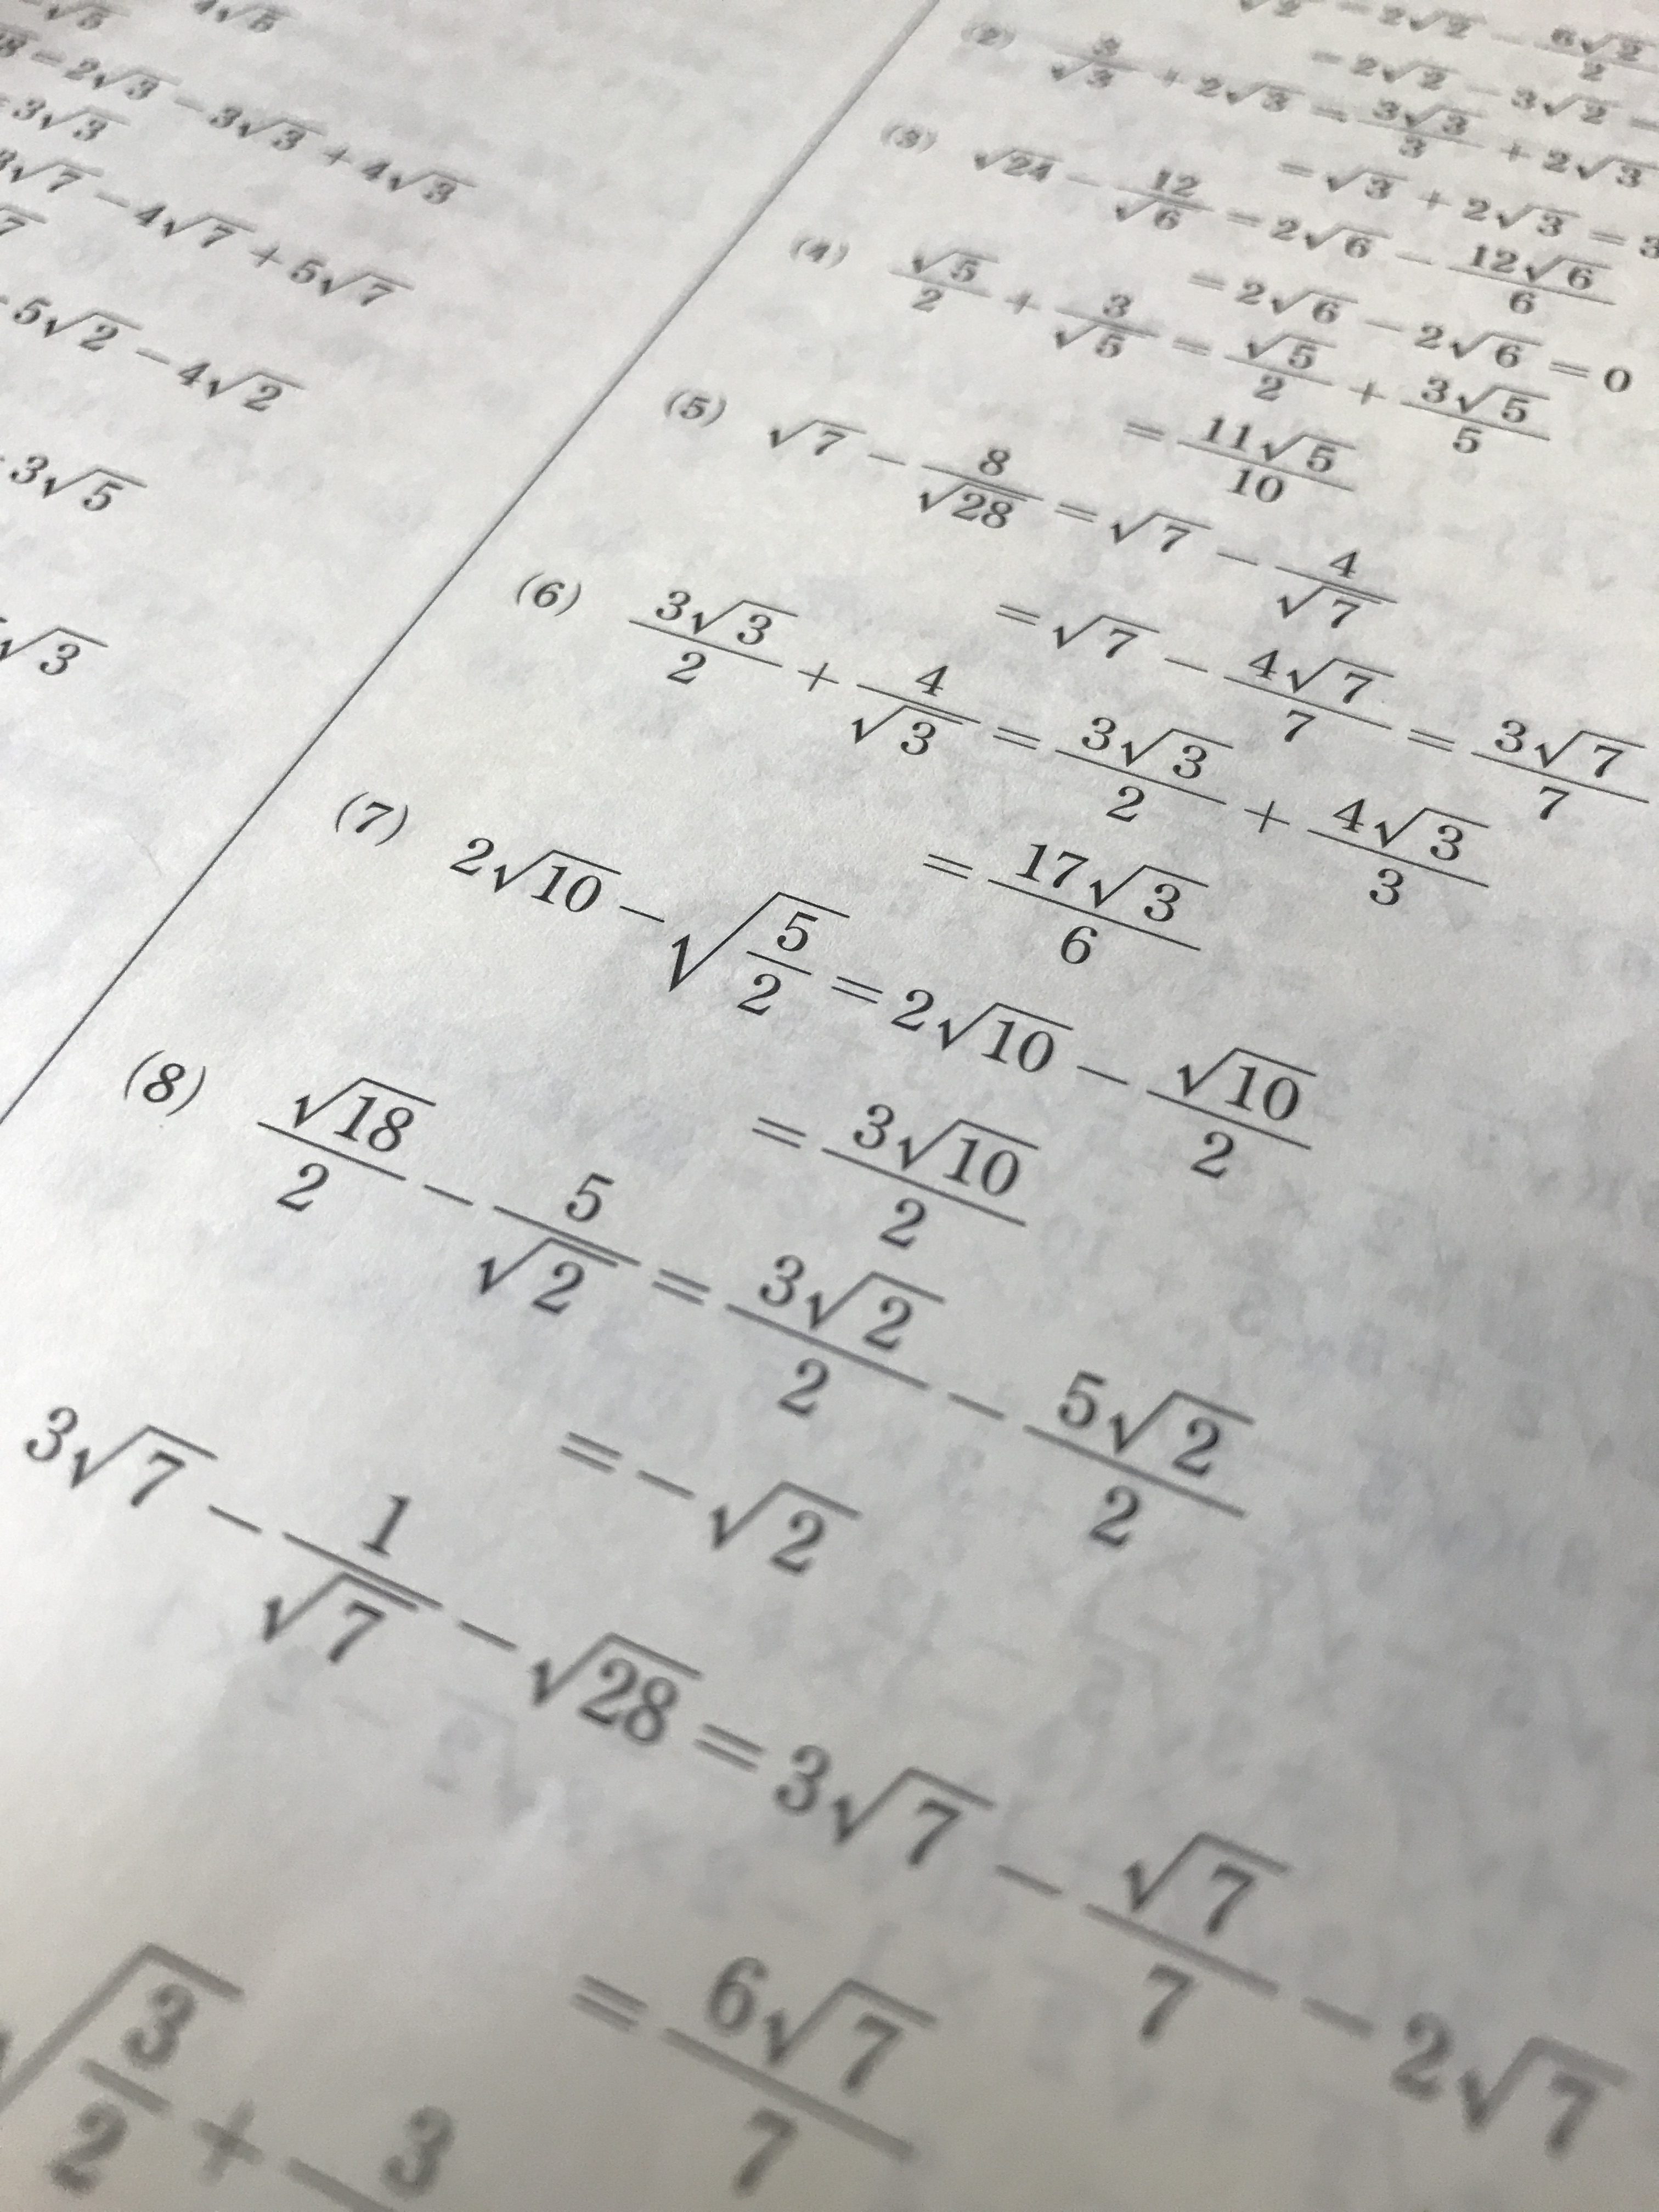 4√5
-2√3-3√3+4√3
=3√3
√7-4√7+5√7
5√2-4√2
3√5
√3
-2√2-6√2/2
=2√2-3√2=
(2) 3/√3+2√3=3√3/3+2√3
=√3+2√3=3
(3) √24-12/√6=2√6-12√6/6
=2√6-2√6=0
(4) √5/2+3/√5=√5/2+3√5/5
=11√5/10
(5) √7-8/√28=√7-4/√7
=√7-4√7/7=3√7/7
(6) 3√3/2+4/√3=3√3/2+4√3/3
=17√3/6
(7) 2√10-√(5/2)=2√10-√10/2
=3√10/2
(8) √18/2-5/√2=3√2/2-5√2/2
=-√2
3√7-1/√7-√28=3√7-√7/7-2√7
=6√7/7
√(3/2)+3